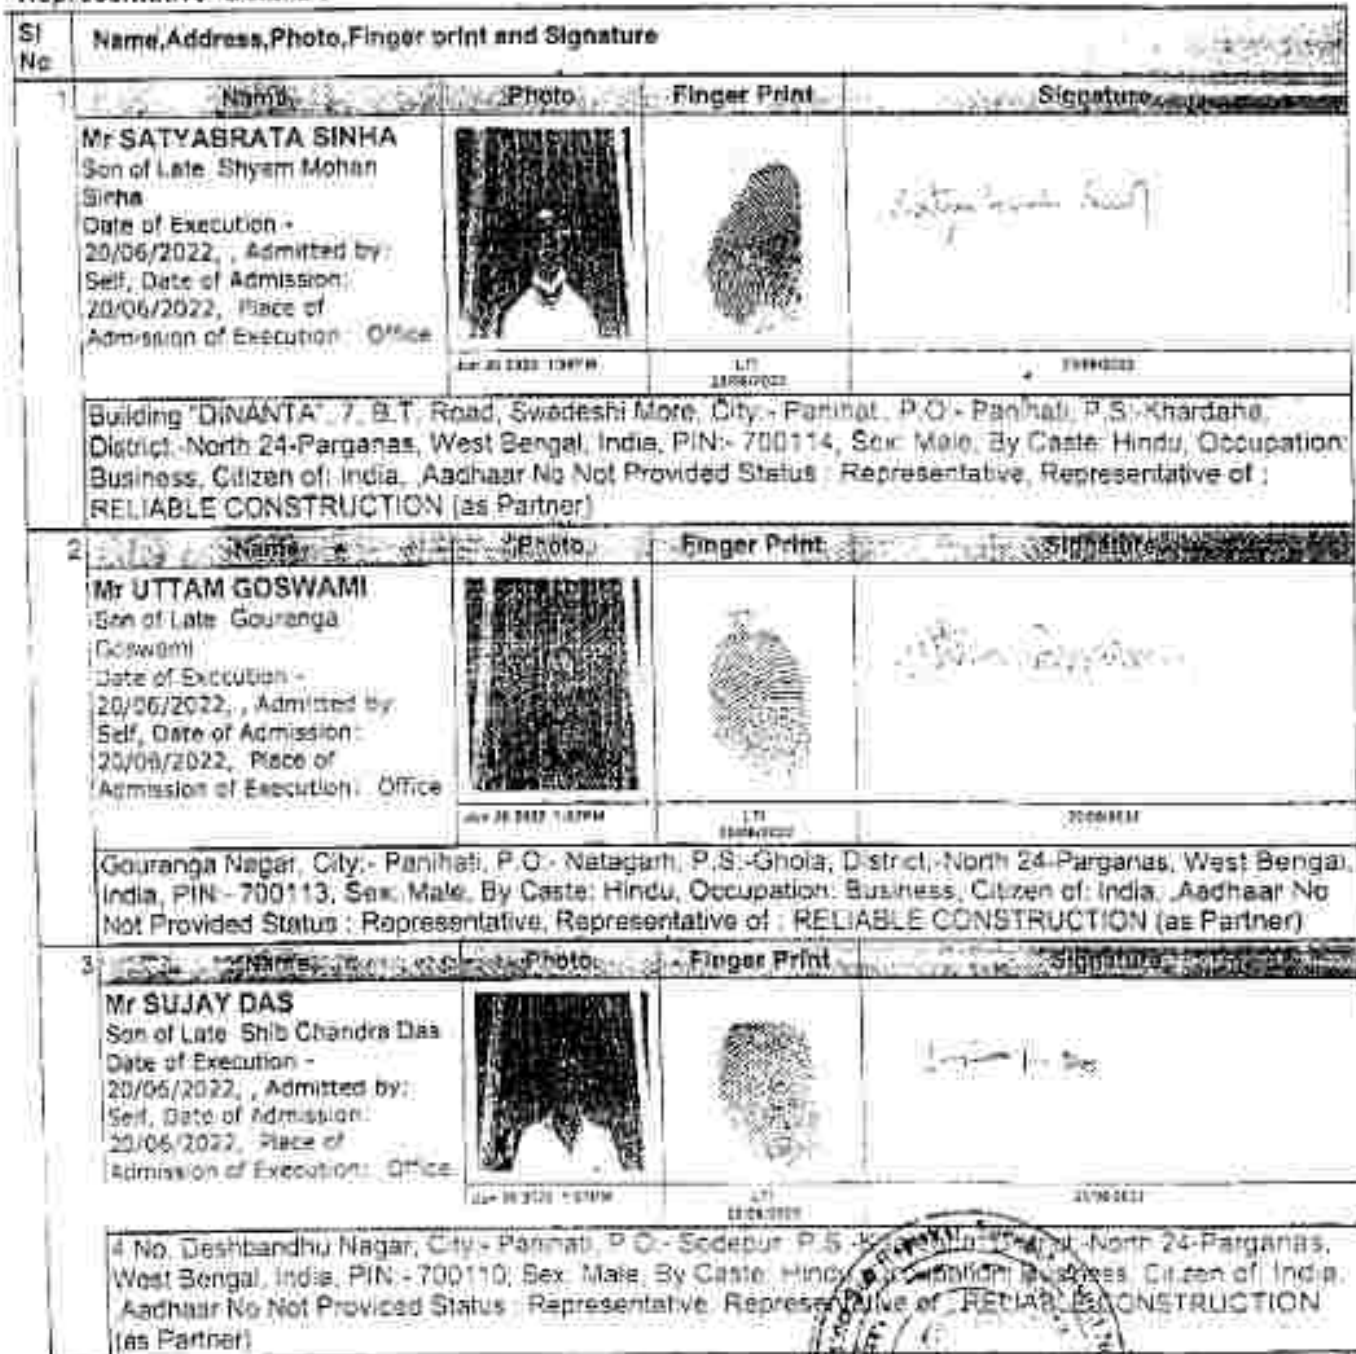 Sl No Name,Address,Photo,Finger print and Signature
1 Name Photo Finger Print Signature
Mr SATYABRATA SINHA
Son of Late Shyam Mohan
Sinha
Date of Execution -
20/06/2022, , Admitted by:
Self, Date of Admission:
20/06/2022, Place of
Admission of Execution: Office
LTI
Building "DINANTA", 7, B.T. Road, Swadeshi More, City:- Panihati, P.O:- Panihati, P.S:-Khardaha,
District:-North 24-Parganas, West Bengal, India, PIN:- 700114, Sex: Male, By Caste: Hindu, Occupation:
Business, Citizen of: India, Aadhaar No Not Provided Status : Representative, Representative of :
RELIABLE CONSTRUCTION (as Partner)
2 Name Photo Finger Print Signature
Mr UTTAM GOSWAMI
Son of Late Gouranga
Goswami
Date of Execution -
20/06/2022, , Admitted by:
Self, Date of Admission:
20/06/2022, Place of
Admission of Execution: Office
LTI
Gouranga Nagar, City:- Panihati, P.O:- Natagarh, P.S:-Ghola, District:-North 24-Parganas, West Bengal,
India, PIN:- 700113, Sex: Male, By Caste: Hindu, Occupation: Business, Citizen of: India, Aadhaar No
Not Provided Status : Representative, Representative of : RELIABLE CONSTRUCTION (as Partner)
3 Name Photo Finger Print Signature
Mr SUJAY DAS
Son of Late Shib Chandra Das
Date of Execution -
20/06/2022, , Admitted by:
Self, Date of Admission:
20/06/2022, Place of
Admission of Execution: Office
LTI
4 No. Deshbandhu Nagar, City:- Panihati, P.O:- Sodepur, -North 24-Parganas,
West Bengal, India, PIN:- 700110, Sex: Male, By Caste: Hindu, Occupation: Business, Citizen of: India,
Aadhaar No Not Provided Status : Representative, Representative of : RELIABLE CONSTRUCTION
(as Partner)